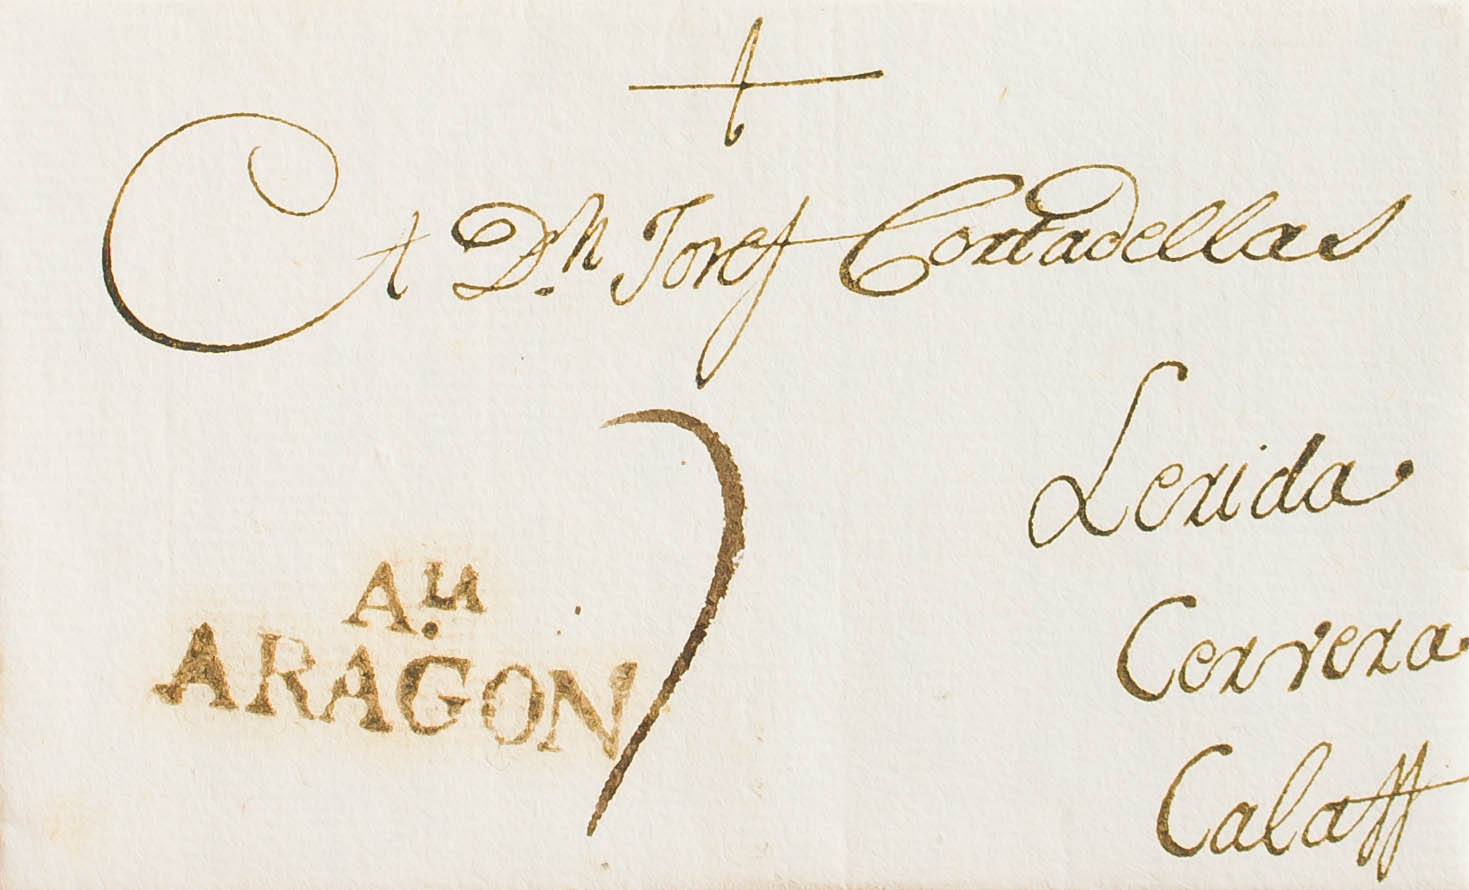 +
A Dn. Josef Cortadellas
Lerida
Cervera
Calaff
7
A.LA
ARAGON